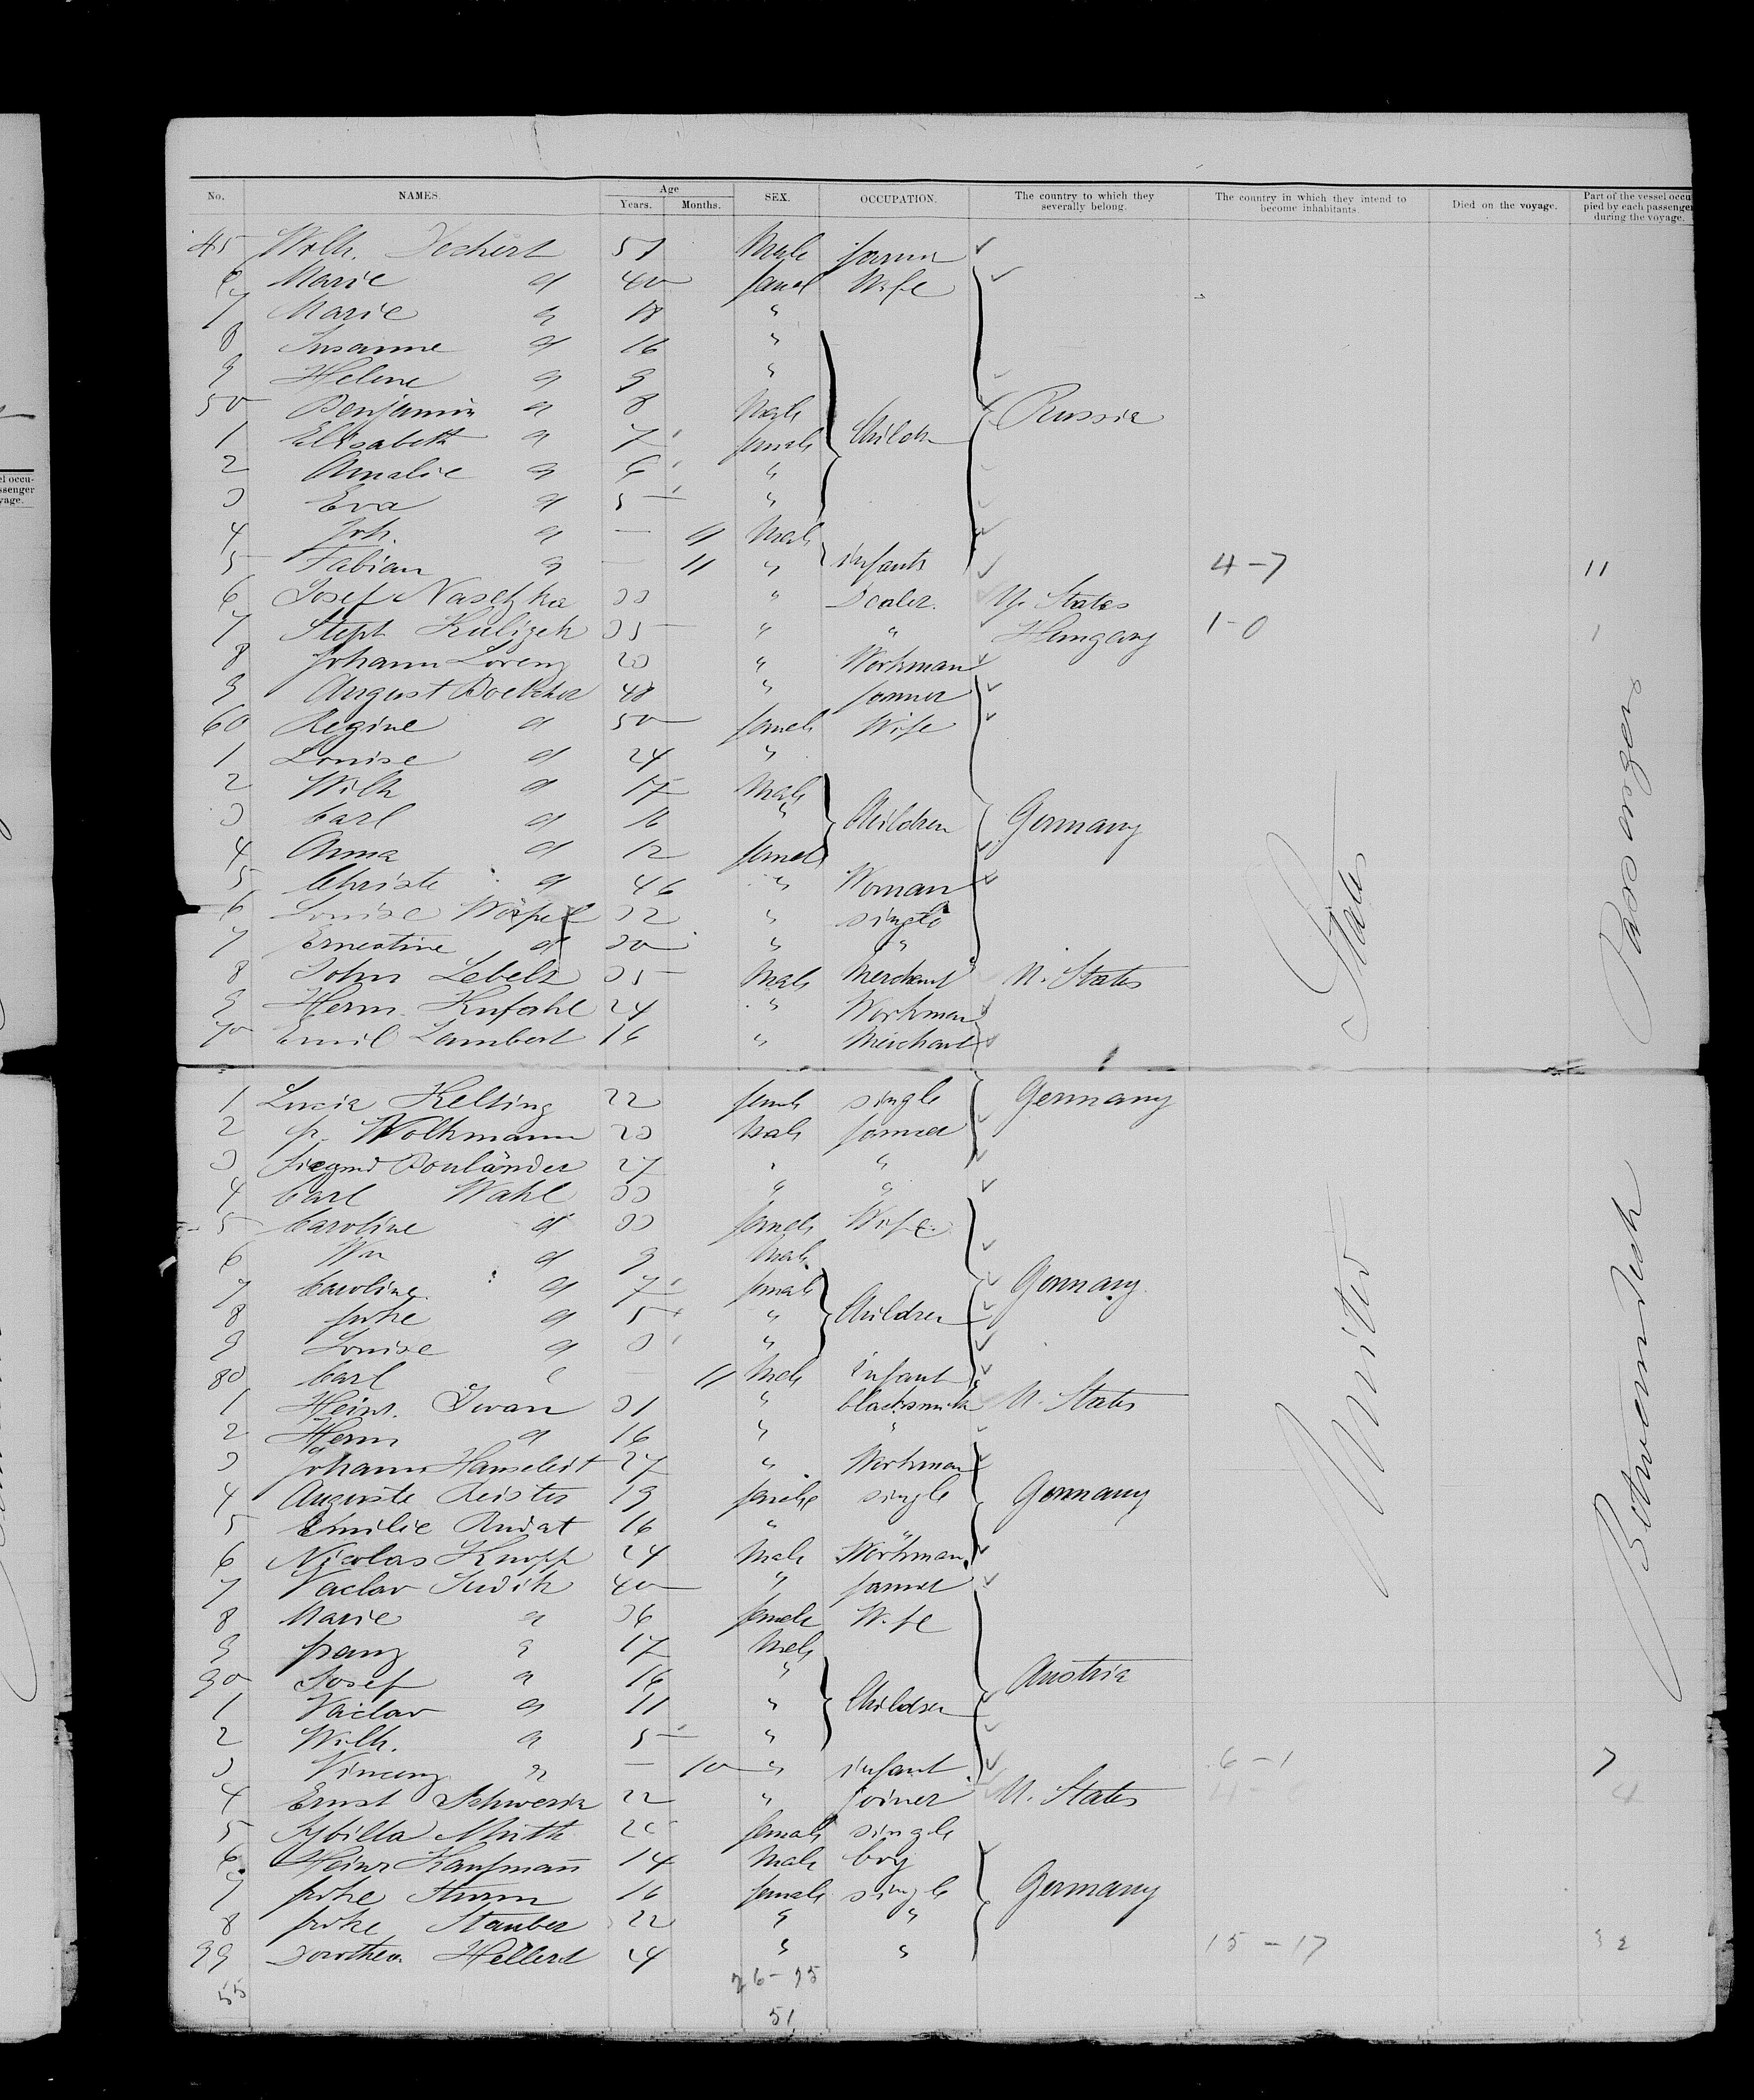 No. NAMES. Age Years. Months. SEX. OCCUPATION. The country to which they severally belong. The country in which they intend to become inhabitants. Died on the voyage. Part of the vessel occupied by each passenger during the voyage.
45 Wilh. Dechert 51 Male farmer
6 Marie d 40 femal Wife
7 Marie d 18 "
8 Susanne d 16 "
9 Helene d 9 "
50 Benjamin d 8 Male Russia
1 Elisabeth d 7 female Childr
2 Amalie d 6 "
3 Eva d 5 "
4 Joh. d — 11 Male
5 Fabian d — 11 " infants 4-7 11
6 Josef Naschka 33 " Dealer U. States
7 Steph Kulizek 35 " " Hungary 1-0 1
8 Johann Lorenz 23 " Workman
9 August Boettcher 48 " farmer
60 Regine d 50 female Wife
1 Louise d 24 "
2 Wilh d 17 Male
3 Carl d 16 " Children Germany
4 Anna d 12 femal
5 Christe d 46 " Woman
6 Louise Wörpel 32 " single
7 Ernestine d 30 " "
8 John Lebelz 35 Male Merchant U. States
9 Herm. Knfahl 24 " Workman
70 Emil Lambert 16 " Merchant
1 Lucia Kelting 22 female single Germany
2 fr. Wolkmann 23 Male farmer
3 Siegmd Bouländer 27 " "
4 Carl Wahl 33 " "
5 Caroline d 33 female Wife
6 Wm d 9 Male
7 Caroline d 7 female Germany
8 frke d 5 " Children
9 Louise d 3 "
80 Carl d — 11 Male infant
1 Heinr. Iwan 31 " blacksmith U. States
2 Herm d 16 " "
3 Johann Hanseleit 27 " Workman
4 Auguste Reister 19 female single Germany
5 Emilie Rudat 16 " "
6 Nicolas Knopp 24 Male Workman
7 Vaclav Sudik 40 " farmer
8 Marie d 36 female Wife
9 franz d 17 Male
90 Josef d 16 " Austria
1 Vaclav d 11 " Children
2 Wilh. d 5 "
3 Vincenz d — 10 " infant 6-1 7
4 Ernst Schwerin 22 " Joiner U. States 4
5 Sybilla Muth 20 female single
6 Heinr Kaufmann 14 Male boy
7 frke Sturm 16 female single Germany
8 frke Stauber 22 " "
99 Dorothea Hellerd 24 " " 15-17 32
55 26-25
51
United States
Betweendeck Passengers